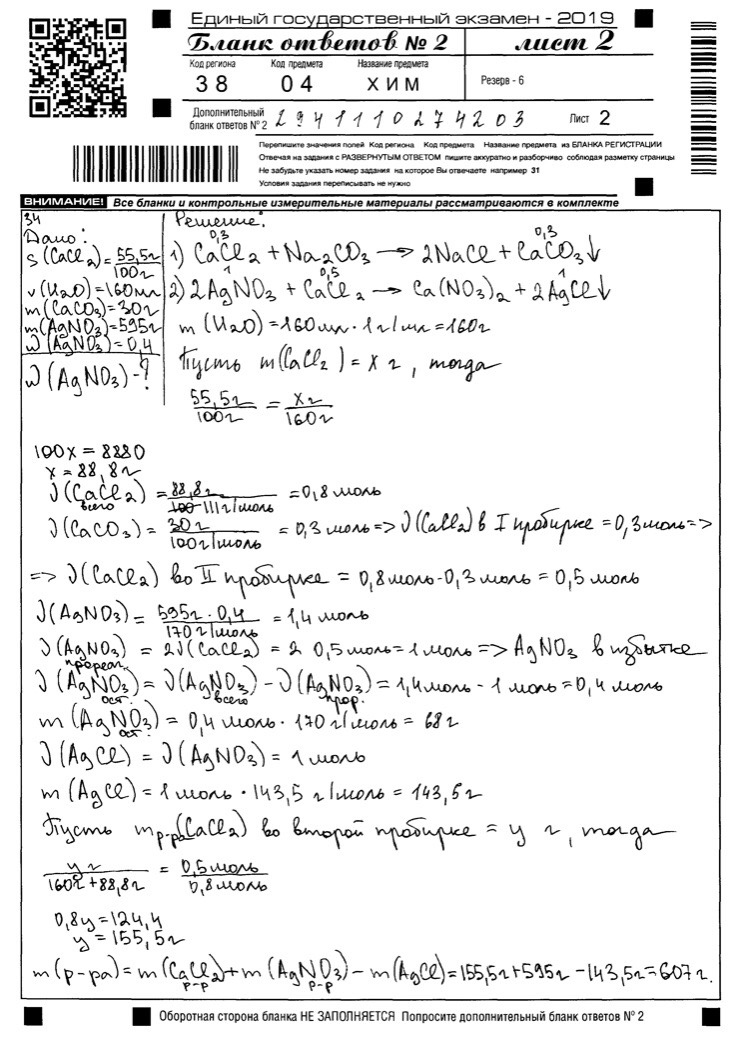 Единый государственный экзамен - 2019
Бланк ответов № 2 лист 2
Код региона Код предмета Название предмета
38 04 ХИМ Резерв - 6
Дополнительный бланк ответов № 2 2941110274203 Лист 2
Перепишите значения полей Код региона Код предмета Название предмета из БЛАНКА РЕГИСТРАЦИИ
Отвечая на задания с РАЗВЕРНУТЫМ ОТВЕТОМ пишите аккуратно и разборчиво соблюдая разметку страницы
Не забудьте указать номер задания на которое Вы отвечаете например 31
Условия задания переписывать не нужно
ВНИМАНИЕ! Все бланки и контрольные измерительные материалы рассматриваются в комплекте
34
Дано:
s(CaCl2)=55,5г/100г
v(H2O)=160мл
m(CaCO3)=30г
m(AgNO3)=595г
ω(AgNO3)=0,4
ω(AgNO3)-?
Решение:
0,3 0,3
1) CaCl2 + Na2CO3 → 2NaCl + CaCO3↓
1 0,5 1
2) 2AgNO3 + CaCl2 → Ca(NO3)2 + 2AgCl↓
m(H2O)=160мл·1г/мл=160г
Пусть m(CaCl2)=x г, тогда
55,5г/100г = xг/160г
100x=8880
x=88,8г
ν(CaCl2)всего = 88,8г/111г/моль = 0,8 моль
ν(CaCO3) = 30г/100г/моль = 0,3 моль => ν(CaCl2) в I пробирке = 0,3моль =>
=> ν(CaCl2) во II пробирке = 0,8моль-0,3моль = 0,5 моль
ν(AgNO3) = 595г·0,4/170г/моль = 1,4 моль
ν(AgNO3)прореаг. = 2ν(CaCl2) = 2 0,5моль=1моль => AgNO3 в избытке
ν(AgNO3)ост. = ν(AgNO3)всего - ν(AgNO3)прор. = 1,4моль - 1 моль = 0,4 моль
m(AgNO3)ост. = 0,4 моль · 170 г/моль = 68г
ν(AgCl) = ν(AgNO3) = 1 моль
m(AgCl) = 1моль · 143,5 г/моль = 143,5г
Пусть m р-ра(CaCl2) во второй пробирке = y г, тогда
yг/160г+88,8г = 0,5моль/0,8моль
0,8y=124,4
y=155,5г
m(р-ра) = m(CaCl2)р-р + m(AgNO3)р-р - m(AgCl)=155,5г+595г-143,5г=607г.
Оборотная сторона бланка НЕ ЗАПОЛНЯЕТСЯ Попросите дополнительный бланк ответов № 2